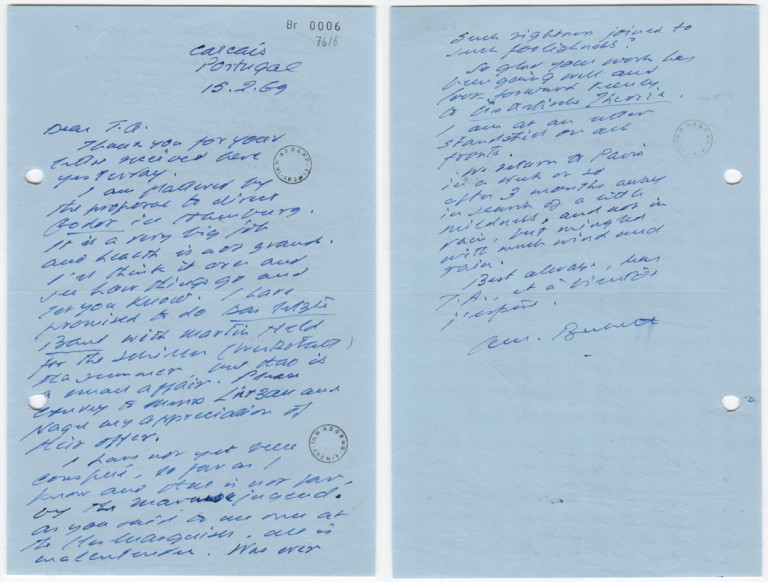 Br 0006
76/6
Cascais
Portugal
15.2.69
Dear T.A.
Thank you for your
letter received here
yesterday.
I am flattered by
the proposal to direct
Godot in Hamburg.
It is a very big job
and health is not grand.
I'll think it over and
see how things go and
let you know. I have
promised to do Das letzte
Band with Martin Held
for the Schiller (Werkstatt)
this summer, but that is
a small affair. Please
convey to Lietzau and
Nagel my appreciation of
their offer.
I have not yet been
conspué, so far as I
know and that is not far,
by the Marcusejugend.
As you said to me once at
the Iles Marquises, all is
malentendu. Was ever
such rightness joined to
such foolishness?
So glad your work has
been going well and
look forward keenly
to
I am at an utter
standstill on all
fronts.
We return to Paris
in a week or so
after 3 months away
in search of a little
mildness, and not in
vain, but mingled
with much wind and
rain.
Best always, dear
T.A., et à bientôt
j'espère.
Sam. Beckett
THEODOR W. ADORNO ARCHIV
THEODOR W. ADORNO ARCHIV